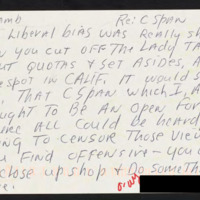 Re: C Span
Liberal bias was Really sh
you cut off the Lady ta
ut quotas & set asides, a
espot in Calif. It would s
, that CSpan which I, a
ught to be an open for
me all could be heard
ng to censor those view
u find offensive - you
close up shop & do someth